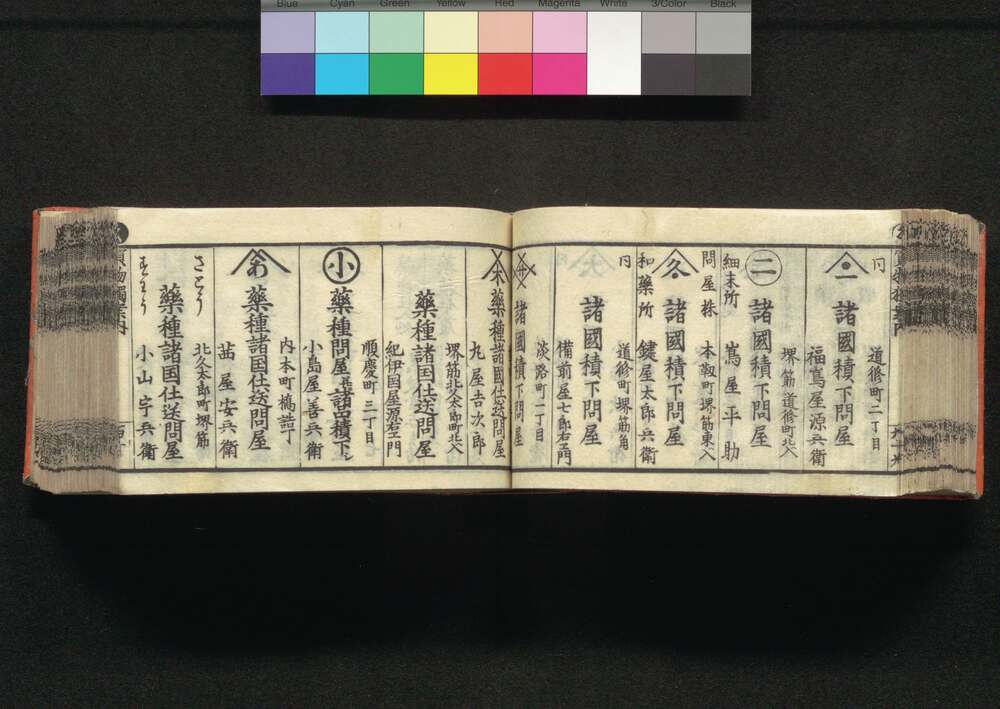 Blue Cyan Green Yellow Red Magenta White 3/Color Black
道修町二丁目
諸國積下問屋
福嶌屋源兵衛
堺筋道修町北入
二
諸國積下問屋
嶌屋平助
細末所
問屋株
本靱町堺筋東入
久
諸國積下問屋
鍵屋太郎兵衛
和藥所
道修町堺筋角
大
諸國積下問屋
備前屋七郎右衛門
淡路町一丁目
諸國積下問屋
本
藥種諸國仕送問屋
丸屋吉次郎
堺筋北久太郎町北入
藥種諸国仕送問屋
紀伊国屋源右衛門
順慶町三丁目
小
藥種問屋諸品積下シ
小島屋善兵衛
内本町橋詰丁
あ
藥種諸国仕送問屋
茜屋安兵衛
北久太郎町堺筋
藥種諸国仕送問屋
小山宇兵衛
買物獨案内